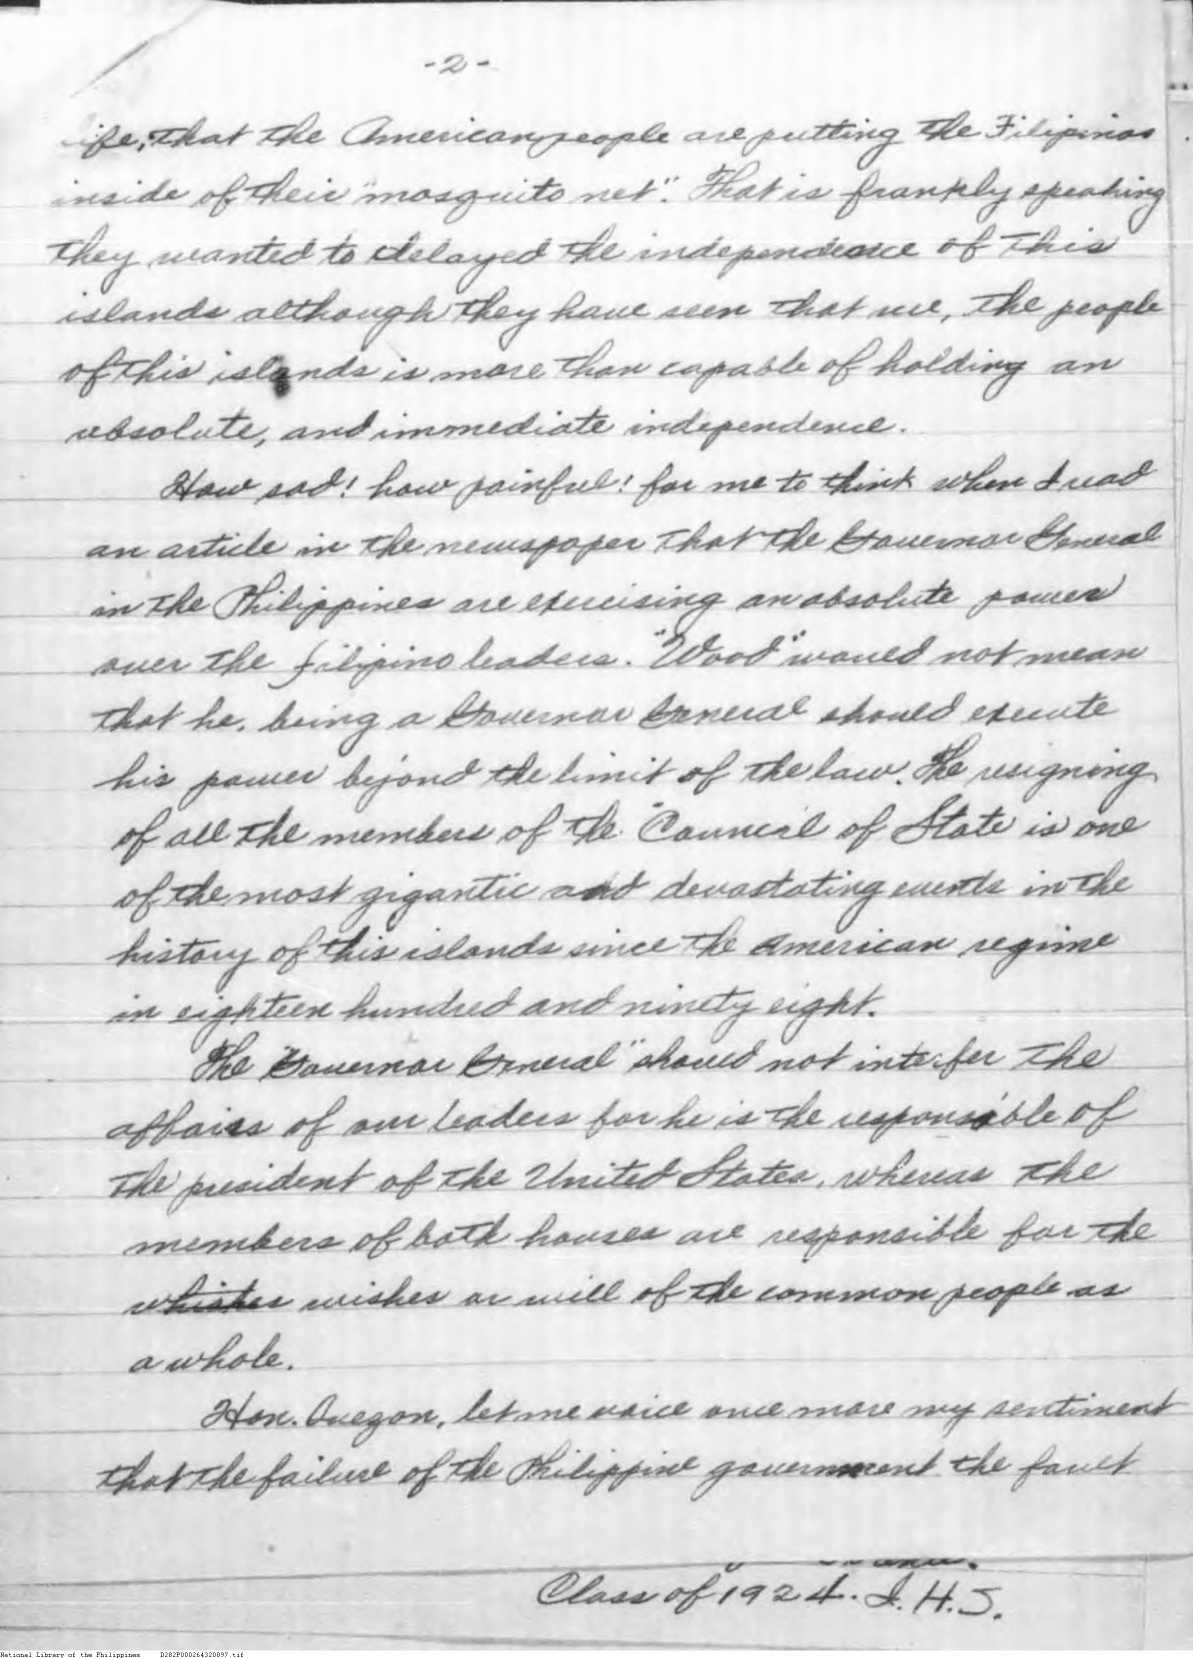 -2-
life, that the American people are putting the Filipinos
inside of their "mosquito net". That is frankly speaking
they wanted to delayed the independence of this
islands although they have seen that we, the people
of this islands is more than capable of holding an
absolute, and immediate independence.
How sad! how painful! for me to think when I read
an article in the newspaper that the Governor General
in the Philippines are exercising an absolute power
over the filipino leaders. "Wood" would not mean
that he, being a Governor General should execute
his power beyond the limit of the law. The resigning
of all the members of the "Council of State is one
of the most gigantic and devastating events in the
history of this islands since the American regime
in eighteen hundred and ninety eight.
The "Governor General" should not interfer the
affairs of our leaders for he is the responsible of
the president of the United States, whereas the
members of both houses are responsible for the
wishes or will of the common people as
a whole.
Hon. Quezon, let me voice once more my sentiment
that the failure of the Philippine government the fault
Class of 1924. I. H. S.
National Library of the Philippines D282P000264320897.tif